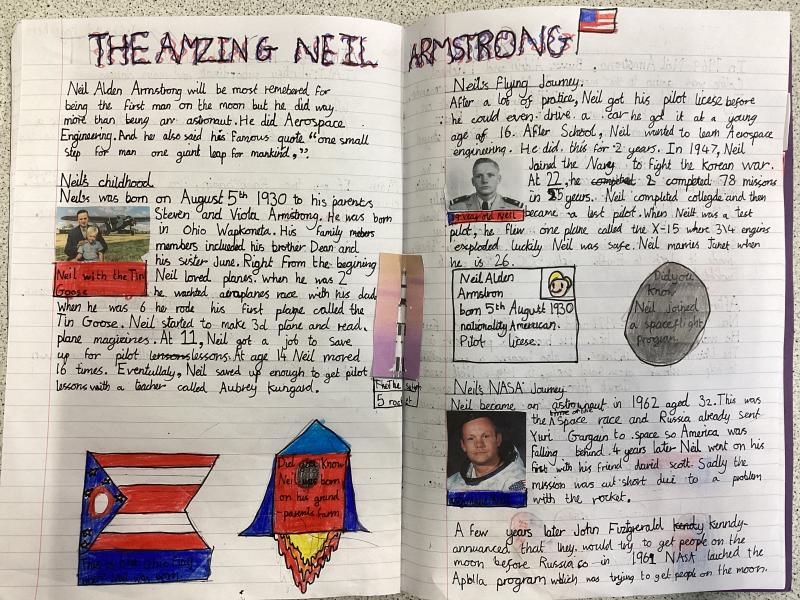 THE AMZING NEIL ARMSTRONG
Neil Alden Armstrong will be most remebered for
being the first man on the moon but he did way
more than being an astronaut. He did Aerospace
Engineering. And he also said his famous quote “one small
step for man one giant leap for mankind,”.
Neil's childhood.
Neil was born on August 5th 1930 to his parents
Steven and Viola Armstrong. He was born
in Ohio Wapkoneta. His family mebers
members included his brother Dean and
his sister June. Right From the begining
Neil loved planes. when he was 2
he wachted airoplanes race with his dad
When he was 6 he rode his first plane called the
Tin Goose. Neil started to make 3d plane and read.
plane magizines. At 11, Neil got a job to save
up for pilot lessons. At age 14 Neil moved
16 times. Eventullaly, Neil saved up enough to get pilot
lessons with a teacher called Aubrey Kungard.
Neil with the Tin
Goose
5 rocket
This is the Ohio flag
Did you Know
Neil was born
on his grand
-parents farm
Neil's Flying Journey.
After a lot of pratice, Neil got his pilot licese before
he could even drive a car he got it at a young
age of 16. After School, Neil wanted to learn Aerospace
engineering. He did this for 2 years. In 1947, Neil
Joined the Navy to fight the Korean war.
At 22, he completed 78 missons
in years. Neil completed collegde and then
became a test pilot. When Neil was a test
pilot, he flew one plane called the X-15 where 3/4 engins
exploded luckily Neil was safe. Neil marries Janet when
he is 26.
Neil Alden
Armstron
born 5th August 1930
nationality American.
Pilot licese.
Did you
Know
Neil joined
a spaceflight
program
Neil's NASA Journey
Neil became an astronaut in 1962 aged 32. This was
the time of the Space race and Russia already sent
Yuri Gargain to space so America was
falling behind. 4 years later Neil went on his
first with his friend david scott. Sadly the
mission was cut short due to a problem
with the rocket.
A few years later John Fiztgerald Kenndy
annuanced that they would try to get people on the
moon before Russia so in 1961 NASA lauched the
Apolla program which was trying to get people on the moon.